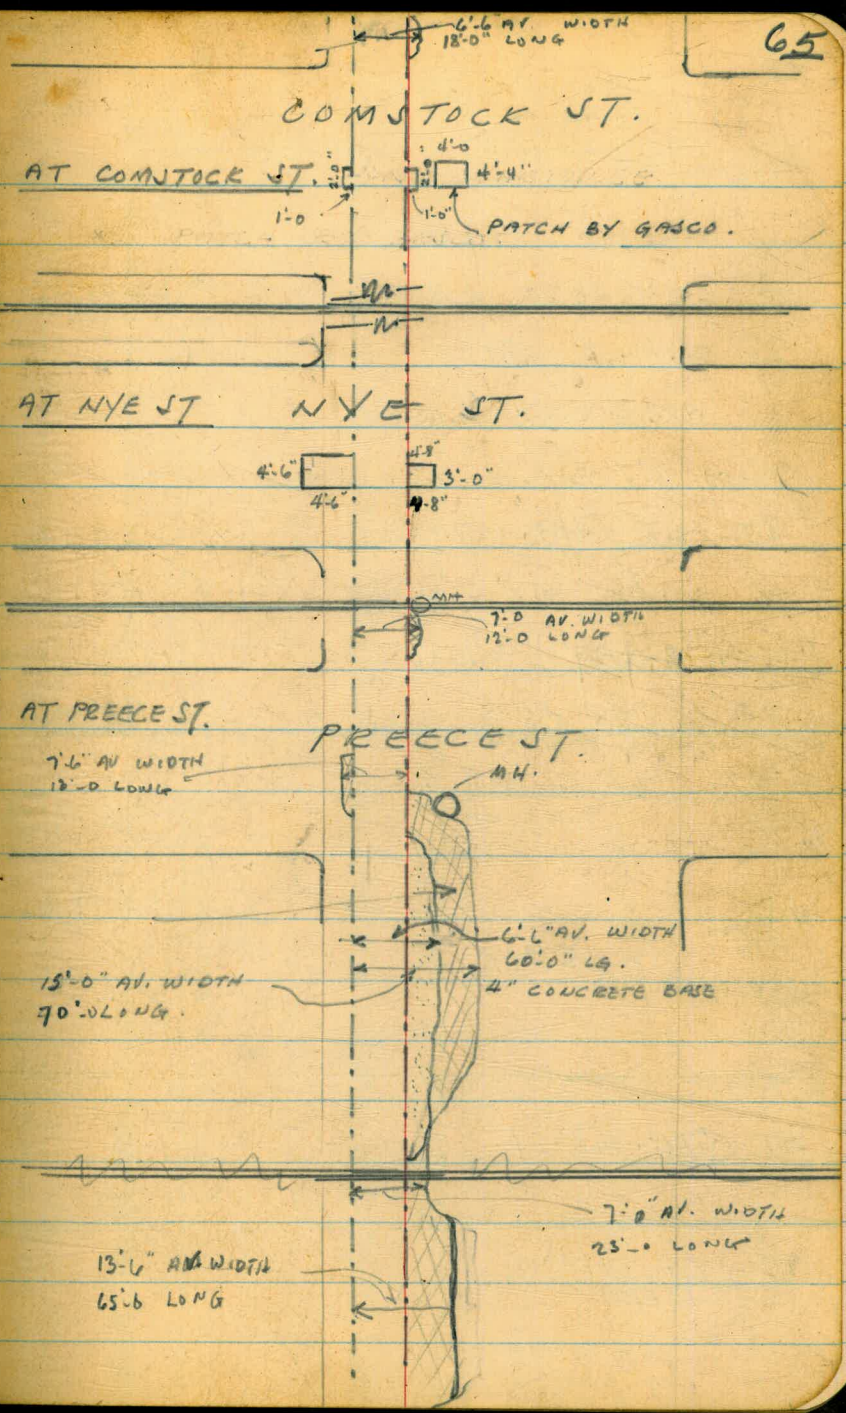 65
6'-6" AV. WIDTH
18'-0" LONG
COMSTOCK ST.
AT COMSTOCK ST.
2'-0"
1'-0
2'-0
1'-0"
4'-0
4'-4"
PATCH BY GASCO.
AT NYE ST
NYE ST.
4'-6"
4'-6"
4'-8"
3'-0"
4'-8"
MH
7'-0 AV. WIDTH
12'-0 LONG
AT PREECE ST.
PREECE ST.
7'-6" AV WIDTH
18'-0 LONG
MH.
6'-6" AV. WIDTH
60'-0" LG.
4" CONCRETE BASE
15'-0" AV. WIDTH
70'-0 LONG.
7'-0" AV. WIDTH
25'-0 LONG
13'-6" AV. WIDTH
65'-6 LONG